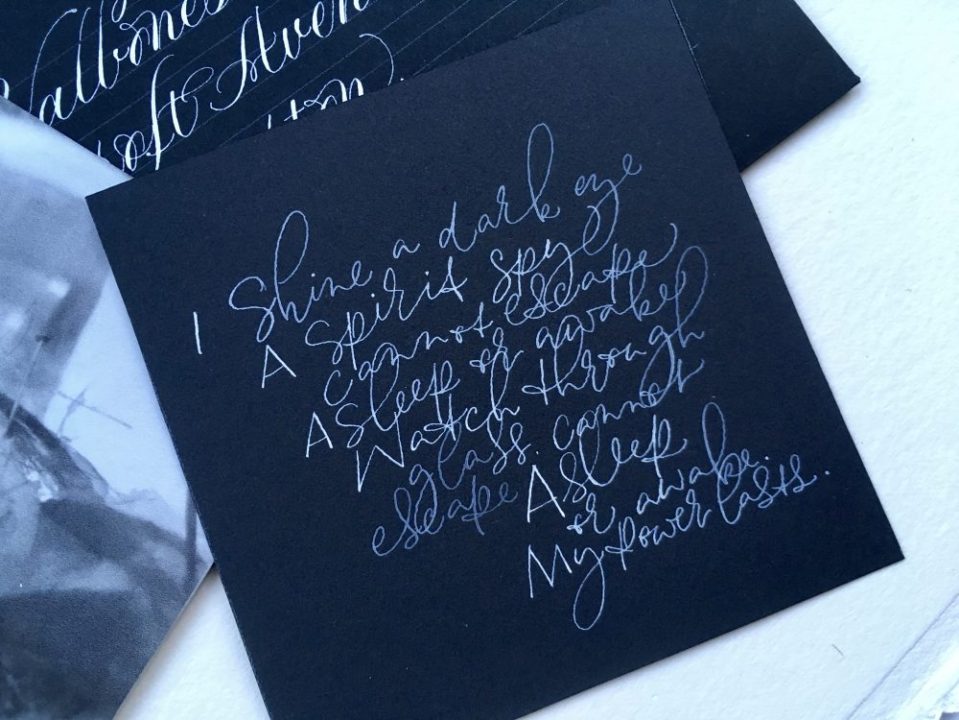 soft Aven
I Shine a dark eye
A Spirit spy
cannot escape
Asleep or awake
Watch through
glass. cannot
escape Asleep
or awake.
My Power lasts.